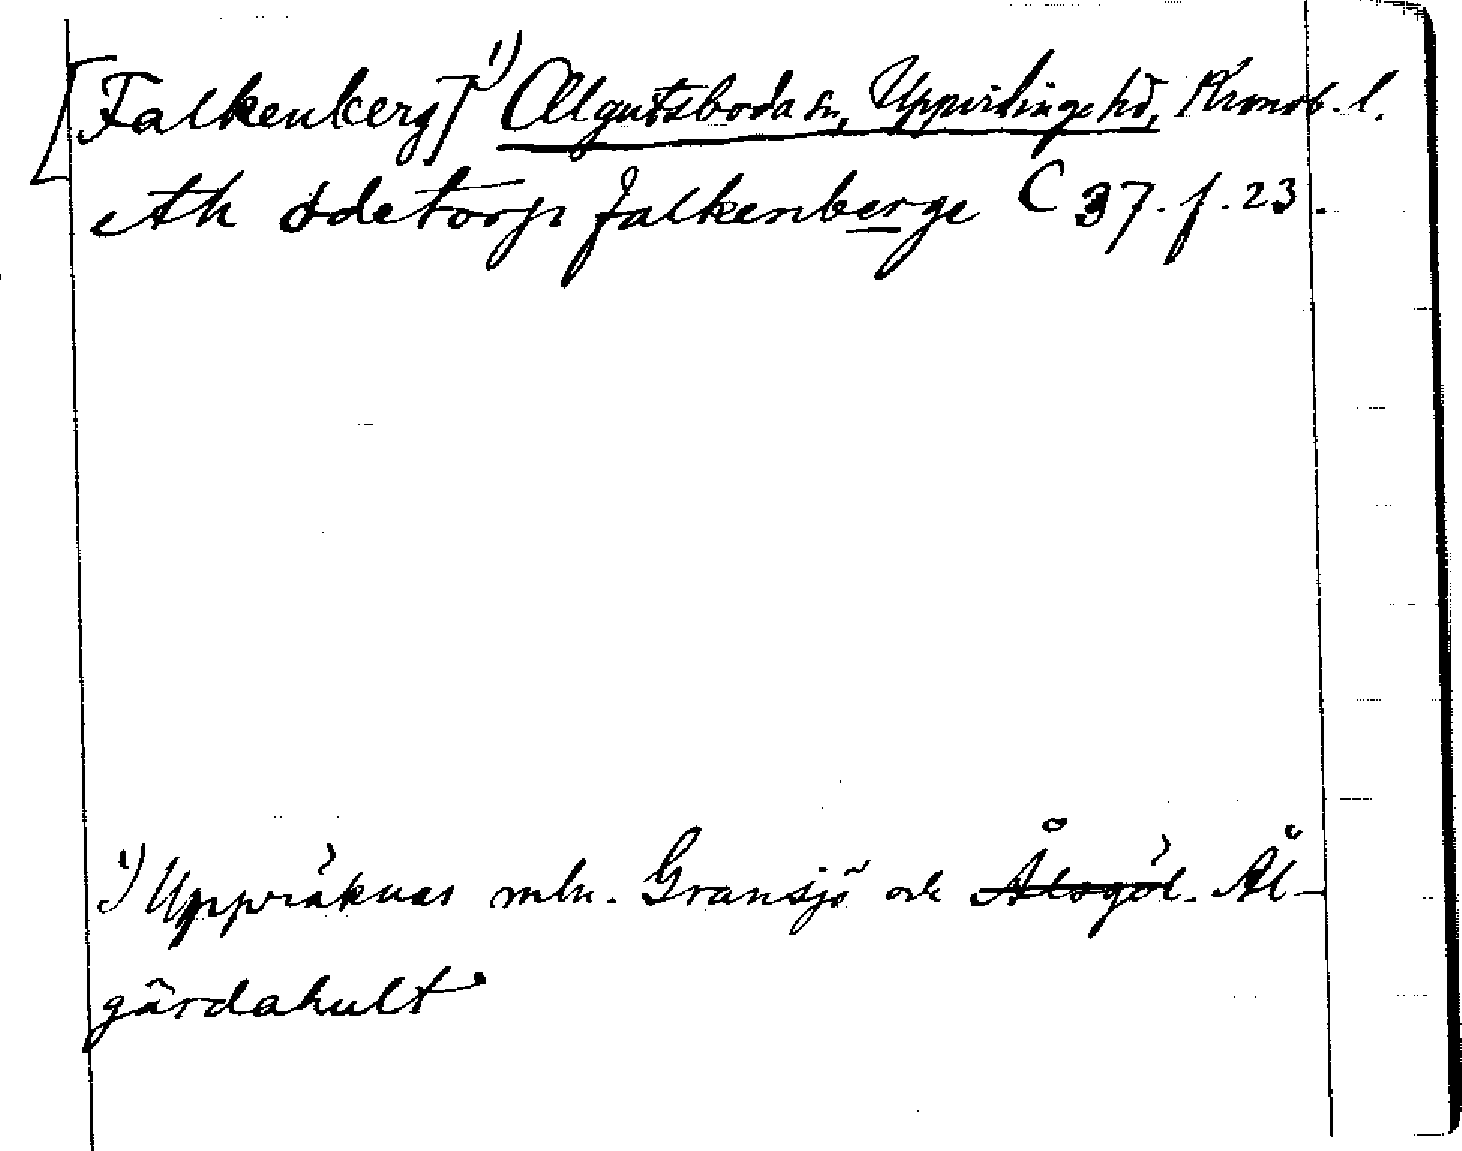 [Falkenberg]¹) Algutsboda sn, Uppvidinge hd, Kronob. l.
eth ödetorp falkenberge C 37. f. 23.
¹) Uppräknas mln. Gransjö och Ålsgöl. Ål-
gärdahult